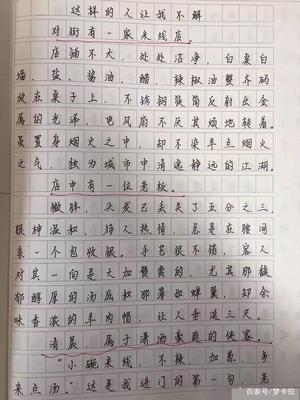 这样的人让我不解
对街有一家米线店
店铺不大，处处洁净，白桌白
墙，盐、酱油、醋，辣椒油整齐码
放在桌子上，不锈钢筷筒反射出金
属的光泽，电风扇不厌其烦地转着。
虽置身烟火之中，却不染半点烟火
之气，独为城市中清逸静远的江湖。
店中有一位老板。
微胖，头发已丢失了五分之三，
眼神温和，待人热情，总是在腰间
系一个包收银。手艺很不错，客人
对其一向是大加赞赏的，尤其那馥
郁醇厚的汤底和那薄如蝉翼，却余
味香浓的羊肉帽，让人垂涎三尺。
清晨，属于潇洒豪爽的侠客。
“小碗米线，不辣，加葱，多
来点汤。”这是我进门的第一句，笔
百家号/梦卡拉